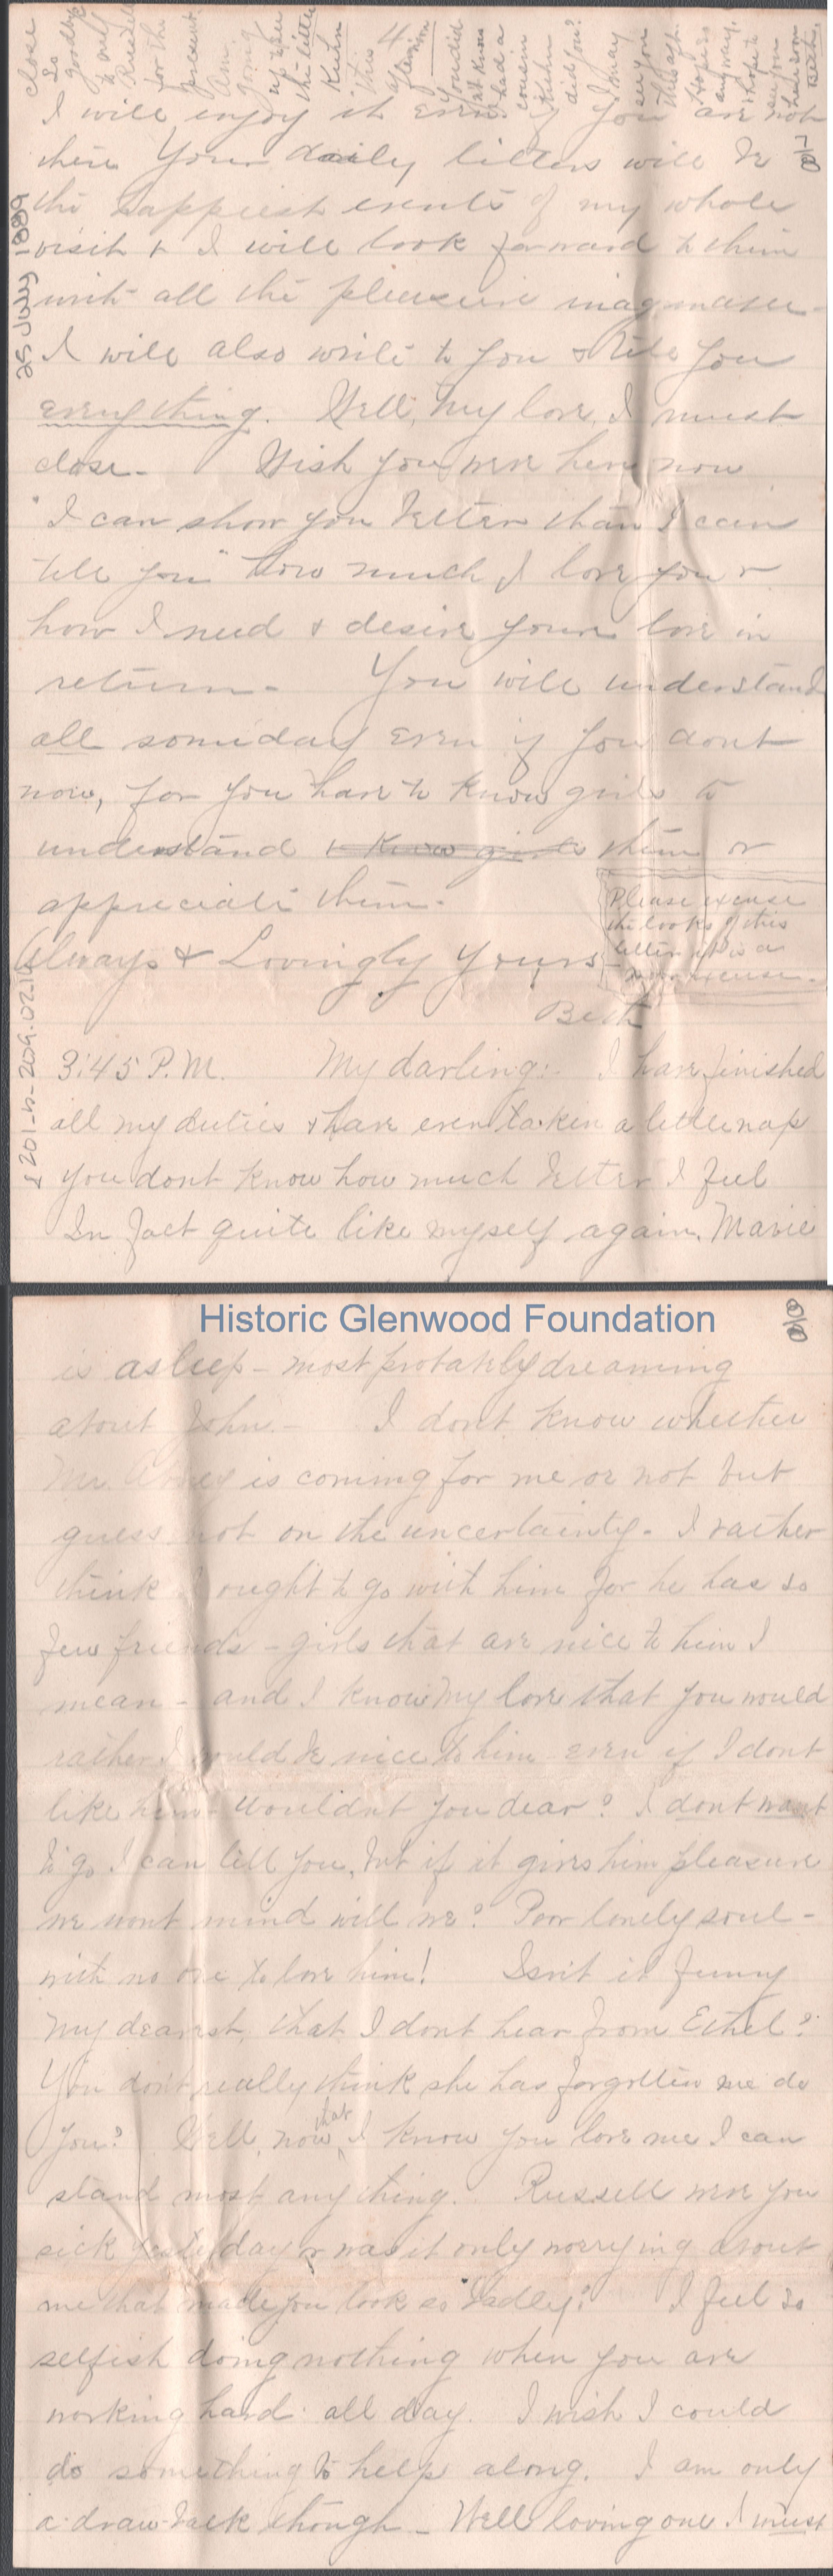 close
So
goodbye
to my
Russell
for the
present.
Am
going
up to see
the little
Kuhn
this
afternoon
4
You did
not know
I had a
cousin
Kuhn
did you?
I may
see you
this aft.
Hope so
anyway.
hope to
see you
real soon
Beth
I will enjoy it even if you are not
7/8
there Your daily letters will be
the happiest events of my whole
visit & I will look forward to them
with all the pleasure imaginable.
I will also write to you & tell you
everything. Well, my love, I must
close. Wish you were here now
"I can show you better than I can
tell you" how much I love you &
how I need & desire your love in
return. You will understand
all someday even if you dont
now, for you have to know girls to
understand & know girls them or
appreciate them.
Please excuse
the looks of this
letter it is a
excuse.
Always & Lovingly Yours
Beth
25 July 1889
1201-h-209.021b
3:45 P.M. My darling: I have finished
all my duties & have even taken a little nap
you dont know how much better I feel
In fact quite like myself again. Marie
Historic Glenwood Foundation
8/8
is asleep - most probably dreaming
about John. I dont know whether
Mr. is coming for me or not but
guess not on the uncertainty. I rather
think I ought to go with him for he has so
few friends - girls that are nice to him I
mean - and I know my love that you would
rather I would be nice to him even if I dont
like him - Wouldnt you dear? I dont want
to go I can tell you, but if it gives him pleasure
we wont mind will we? Poor lonely soul -
with no one to love him! Isn't it funny
my dearest, that I dont hear from Ethel?
You don't really think she has forgotten me do
you? Well, now that I know you love me I can
stand most any thing. Russell were you
sick yesterday or was it only worrying about
me that made you look so badly? I feel so
selfish doing nothing when you are
working hard all day. I wish I could
do something to help along. I am only
a draw-back though - Well loving one I must